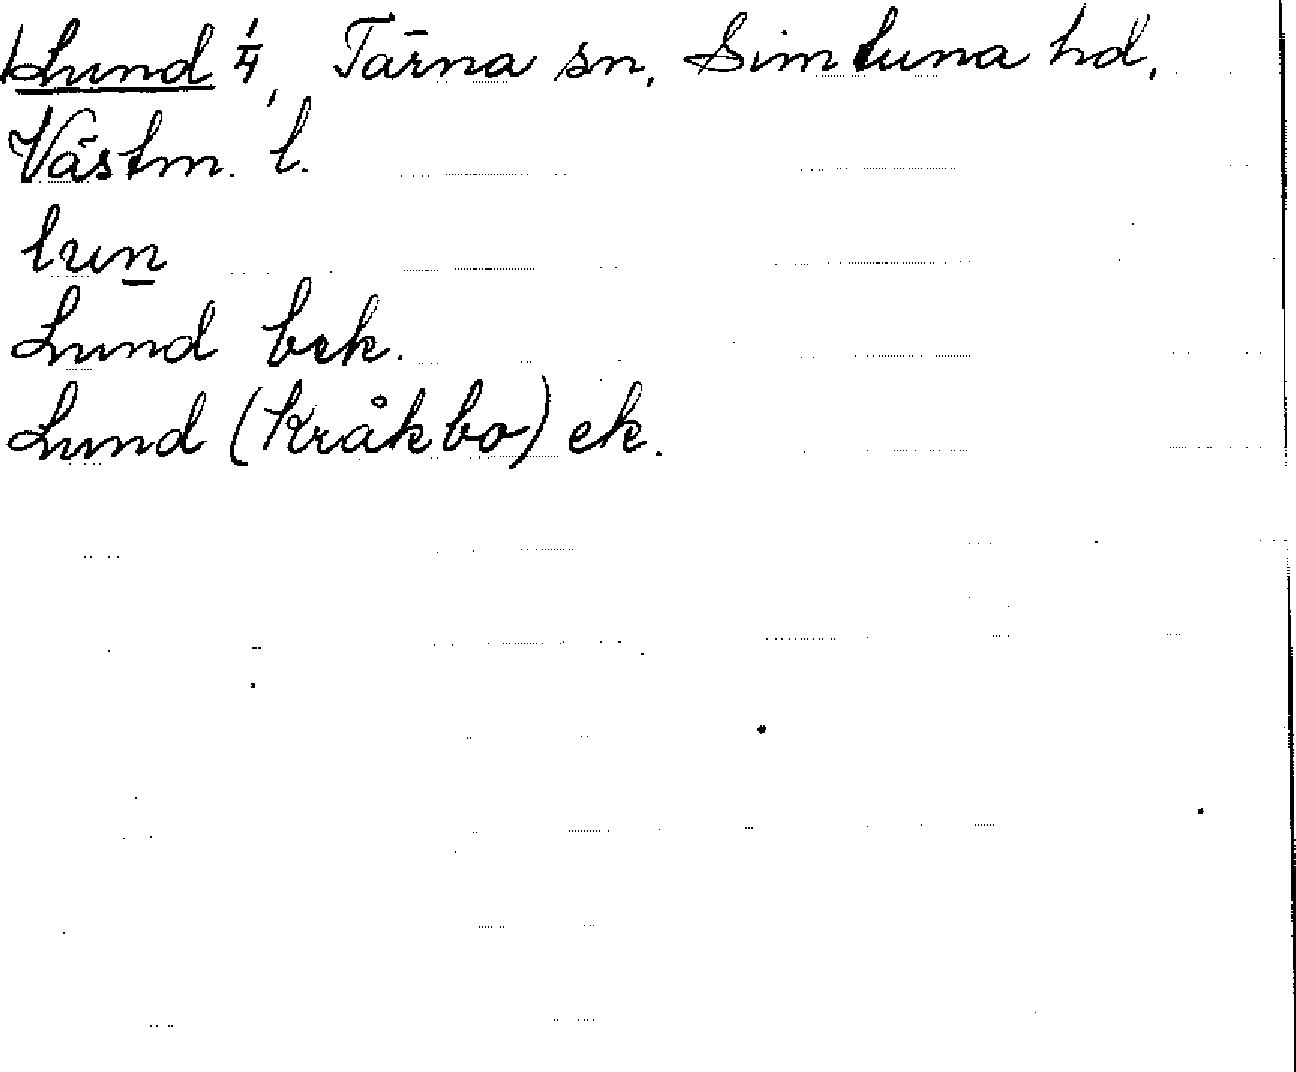 Lund 1/4, Tärna sn, Simtuna hd,
Västm. l.
lun
Lund bek.
Lund (Kråkbo) ek.